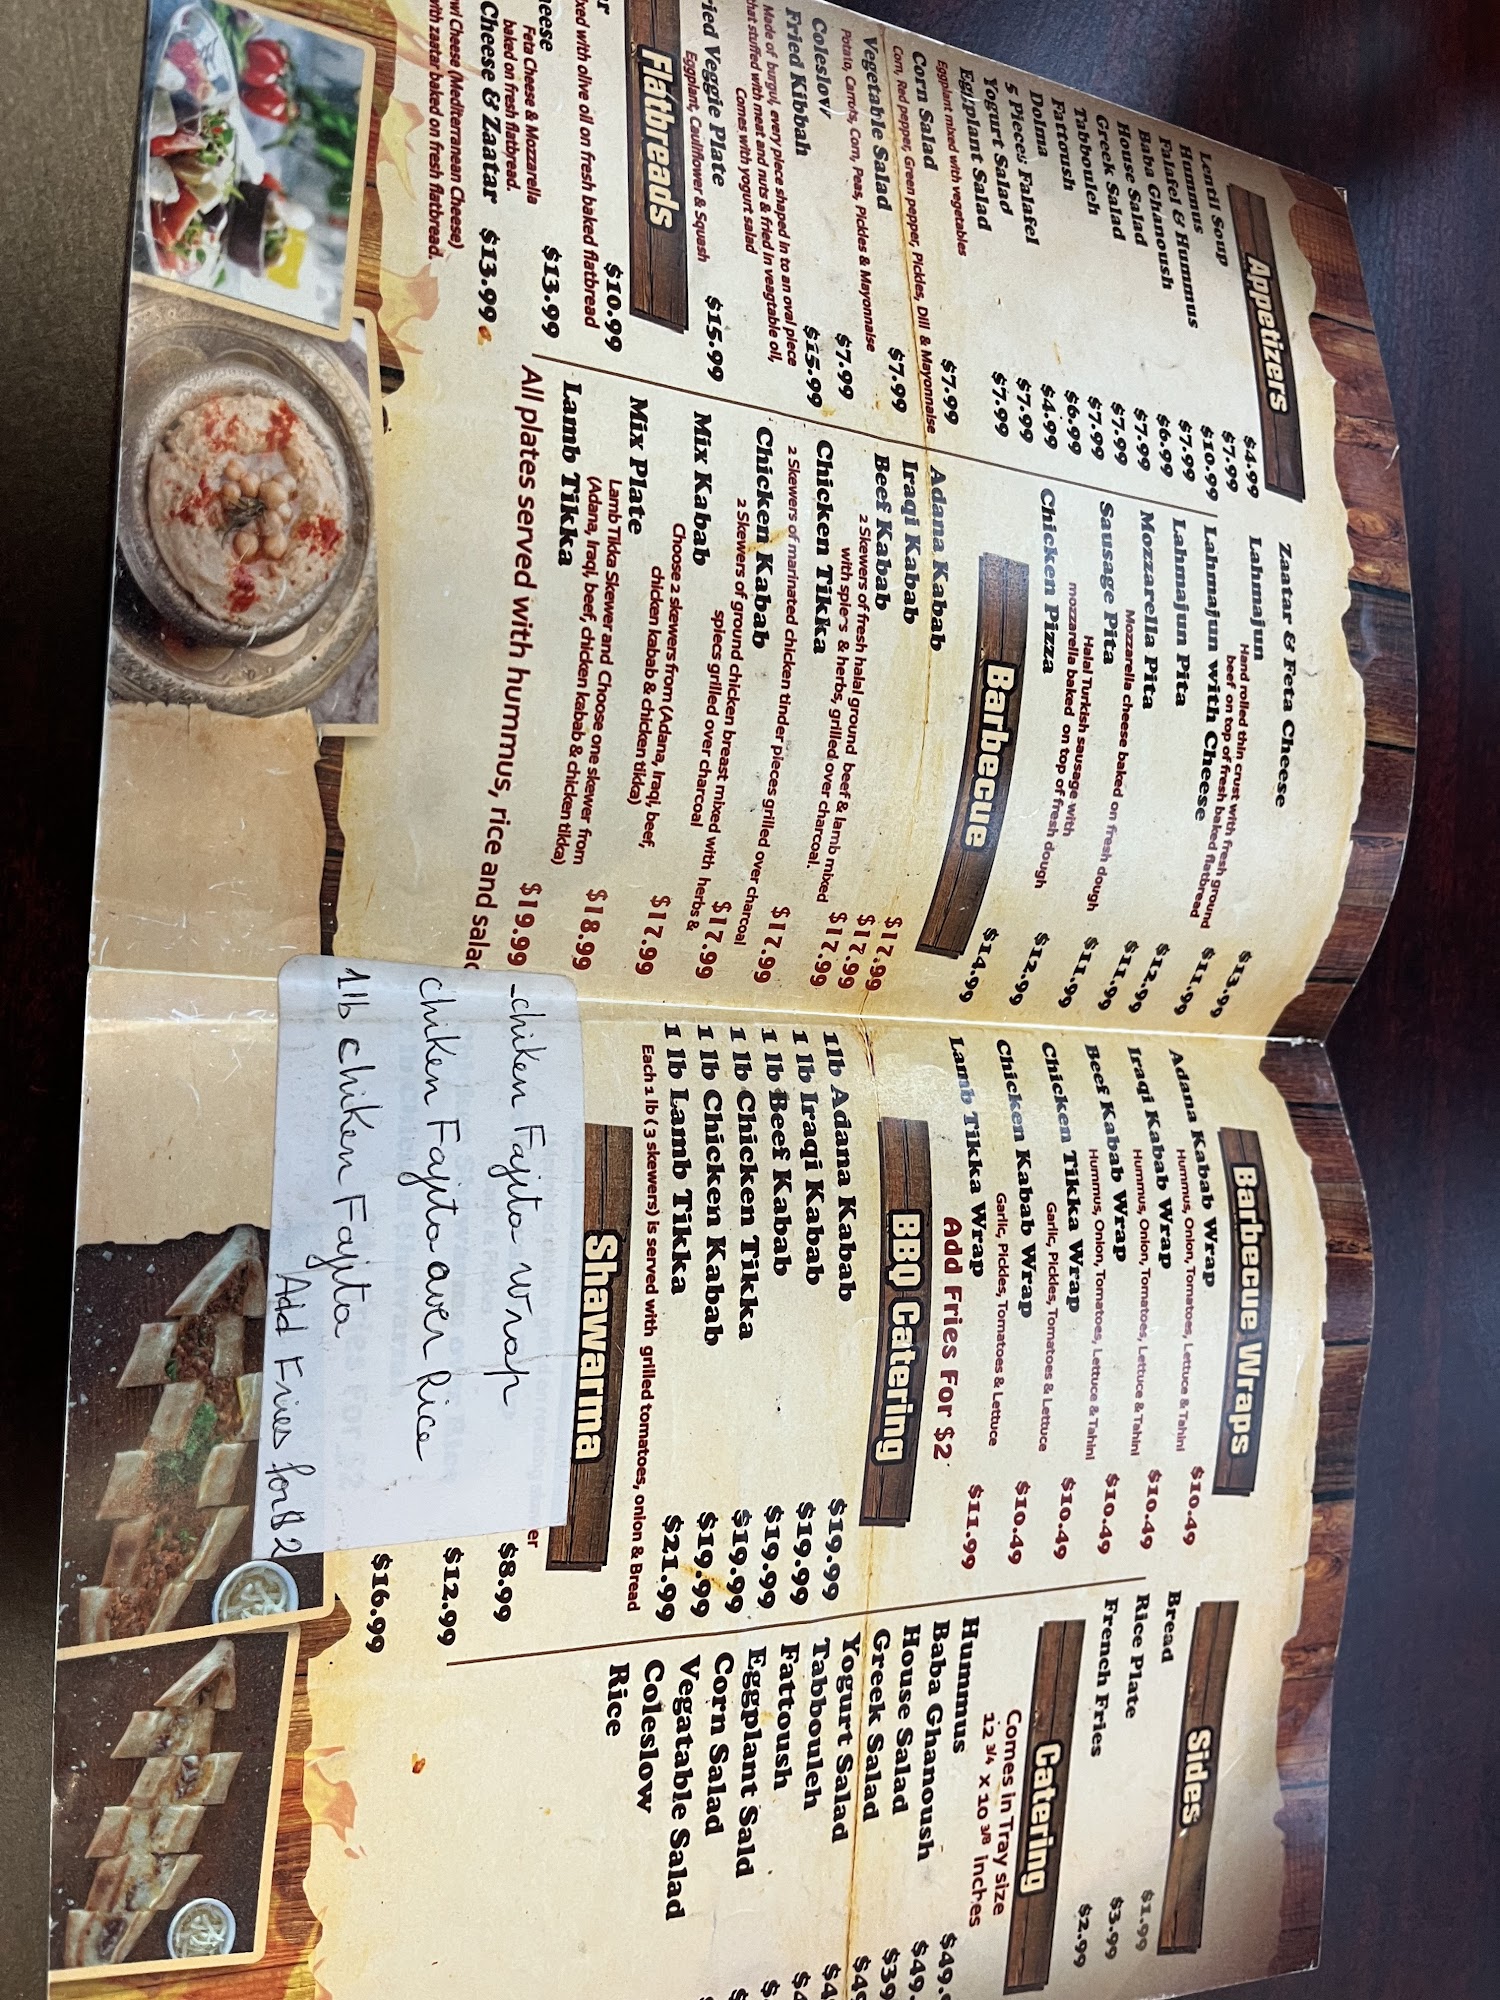 Appetizers
Lentil Soup $4.99
Hummus $7.99
Falafel & Hummus $10.99
Baba Ghanoush $7.99
House Salad $6.99
Greek Salad $7.99
Tabbouleh $7.99
Fattoush $7.99
Dolma $6.99
5 Pieces Falafel $4.99
Yogurt Salad $7.99
Eggplant Salad $7.99
Eggplant mixed with vegetables
Corn Salad $7.99
Corn, Red pepper, Green pepper, Pickles, Dill & Mayonnaise
Vegetable Salad $7.99
Potato, Carrots, Corn, Peas, Pickles & Mayonnaise
Coleslow $7.99
Fried Kibbah $15.99
Made of burgul, every piece shaped in to an oval piece
that stuffed with meat and nuts & fried in veagtable oil,
Comes with yogurt salad
ried Veggie Plate $15.99
Eggplant, Cauliflower & Squash
Flatbreads
r $10.99
xed with olive oil on fresh baked flatbread
heese $13.99
Feta Cheese & Mozzarella
baked on fresh flatbread.
Cheese & Zaatar $13.99
wi Cheese (Mediterranean Cheese)
with zaatar baked on fresh flatbread.
Zaatar & Feta Cheese $13.99
Lahmajun $11.99
Hand rolled thin crust with fresh ground
beef on top of fresh baked flatbread
Lahmajun with Cheese $12.99
Lahmajun Pita $11.99
Mozzarella Pita $11.99
Mozzarella cheese baked on fresh dough
Sausage Pita $12.99
Halal Turkish sausage with
mozzarella baked on top of fresh dough
Chicken Pizza $14.99
Barbecue
Adana Kabab $17.99
Iraqi Kabab $17.99
Beef Kabab $17.99
2 Skewers of fresh halal ground beef & lamb mixed
with spices & herbs, grilled over charcoal.
Chicken Tikka $17.99
2 Skewers of marinated chicken tinder pieces grilled over charcoal
Chicken Kabab $17.99
2 Skewers of ground chicken breast mixed with herbs &
spiecs grilled over charcoal
Mix Kabab $17.99
Choose 2 skewers from (Adana, Iraqi, beef,
chicken kabab & chicken tikka)
Mix Plate $18.99
Lamb Tikka Skewer and Choose one skewer from
(Adana, Iraqi, beef, chicken kabab & chicken tikka)
Lamb Tikka $19.99
All plates served with hummus, rice and salad
Barbecue Wraps
Adana Kabab Wrap $10.49
Hummus, Onion, Tomatoes, Lettuce & Tahini
Iraqi Kabab Wrap $10.49
Hummus, Onion, Tomatoes, Lettuce & Tahini
Beef Kabab Wrap $10.49
Hummus, Onion, Tomatoes, Lettuce & Tahini
Chicken Tikka Wrap $10.49
Garlic, Pickles, Tomatoes & Lettuce
Chicken Kabab Wrap $10.49
Garlic, Pickles, Tomatoes & Lettuce
Lamb Tikka Wrap $11.99
Add Fries For $2
BBQ Catering
1lb Adana Kabab $19.99
1 lb Iraqi Kabab $19.99
1 lb Beef Kabab $19.99
1 lb Chicken Tikka $19.99
1 lb Chicken Kabab $19.99
1 lb Lamb Tikka $21.99
Each 1 lb (3 skewers) is served with grilled tomatoes, onion & Bread
Shawarma
er
_chiken Fajita wrap $8.99
chiken Fajita over Rice $12.99
1lb chiken Fajita $16.99
Add Fries for $2
Sides
Bread $1.99
Rice Plate $3.99
French Fries $2.99
Catering
Comes in Tray size
12 3/4 x 10 3/8 inches
Hummus $49.
Baba Ghanoush $49.
House Salad $39
Greek Salad $49
Yogurt Salad $4
Tabbouleh $4
Fattoush $
Eggplant Sald $
Corn Salad $
Vegatable Salad
Coleslow
Rice